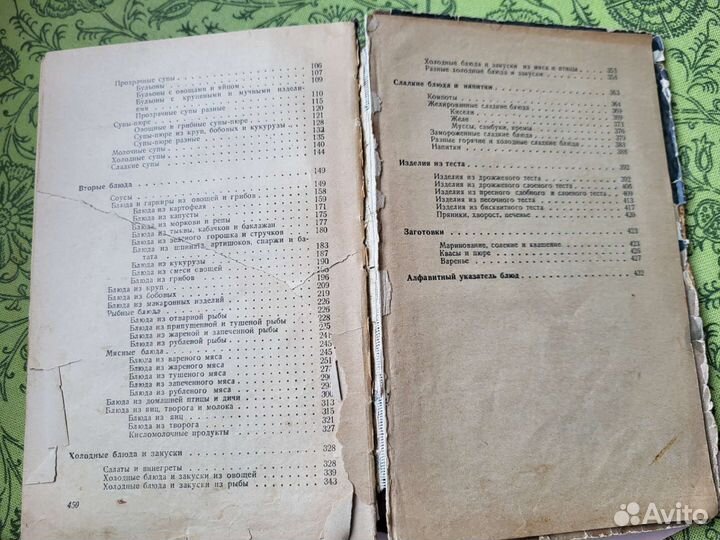 Прозрачные супы . . . . 106
Бульоны . . . . 107
Бульоны с овощами и яйцом . . . . 109
Бульоны с крупяными и мучными изделиями . . . . 110
Прозрачные супы разные . . . . 115
Супы-пюре . . . . 120
Овощные и грибные супы-пюре . . . . 121
Супы-пюре из круп, бобовых и кукурузы . . . . 128
Супы-пюре разные . . . . 132
Молочные супы . . . . 135
Холодные супы . . . . 140
Сладкие супы . . . . 144
Вторые блюда . . . . 149
Соусы . . . . 149
Блюда и гарниры из овощей и грибов . . . . 158
Блюда из картофеля . . . . 159
Блюда из капусты . . . . 171
Блюда из моркови и репы . . . . 175
Блюда из тыквы, кабачков и баклажан . . . . 177
Блюда из зеленого горошка и стручков . . . . 180
Блюда из шпината, артишоков, спаржи и батата . . . . 183
Блюда из кукурузы . . . . 187
Блюда из смеси овощей . . . . 190
Блюда из грибов
Блюда из круп . . . . 196
Блюда из бобовых . . . . 209
Блюда из макаронных изделий . . . . 216
Рыбные блюда . . . . 219
Блюда из отварной рыбы . . . . 226
Блюда из припущенной и тушеной рыбы . . . . 226
Блюда из жареной и запеченной рыбы . . . . 228
Блюда из рублевой рыбы
Мясные блюда . . . . 245
Блюда из вареного мяса . . . . 245
Блюда из жареного мяса . . . . 251
Блюда из тушеного мяса
Блюда из запеченного мяса
Блюда из рубленого мяса
Блюда из домашней птицы и дичи
Блюда из яиц, творога и молока . . . . 313
Блюда из яиц . . . . 315
Блюда из творога . . . . 321
Кисломолочные продукты . . . . 327
Холодные блюда и закуски . . . . 328
Салаты и винегреты . . . . 328
Холодные блюда и закуски из овощей . . . . 339
Холодные блюда и закуски из рыбы . . . . 343
450
Холодные блюда и закуски из мяса и птицы . . . . 351
Разные холодные блюда и закуски . . . . 358
Сладкие блюда и напитки . . . . 363
Компоты . . . . 364
Желированные сладкие блюда . . . . 369
Кисели . . . . 369
Желе . . . . 371
Муссы, самбуки, кремы . . . . 373
Замороженные сладкие блюда . . . . 376
Разные горячие и холодные сладкие блюда . . . . 379
Напитки . . . . 383
Изделия из теста . . . . 392
Изделия из дрожжевого теста . . . . 392
Изделия из дрожжевого слоеного теста . . . . 406
Изделия из пресного сдобного и слоеного теста . . . . 409
Изделия из песочного теста . . . . 413
Изделия из бисквитного теста . . . . 417
Пряники, хворост, печенье . . . . 420
Заготовки . . . . 423
Маринование, соление и квашение . . . . 423
Квасы и пюре . . . . 426
Варенье . . . . 427
Алфавитный указатель блюд . . . . 432
Avito